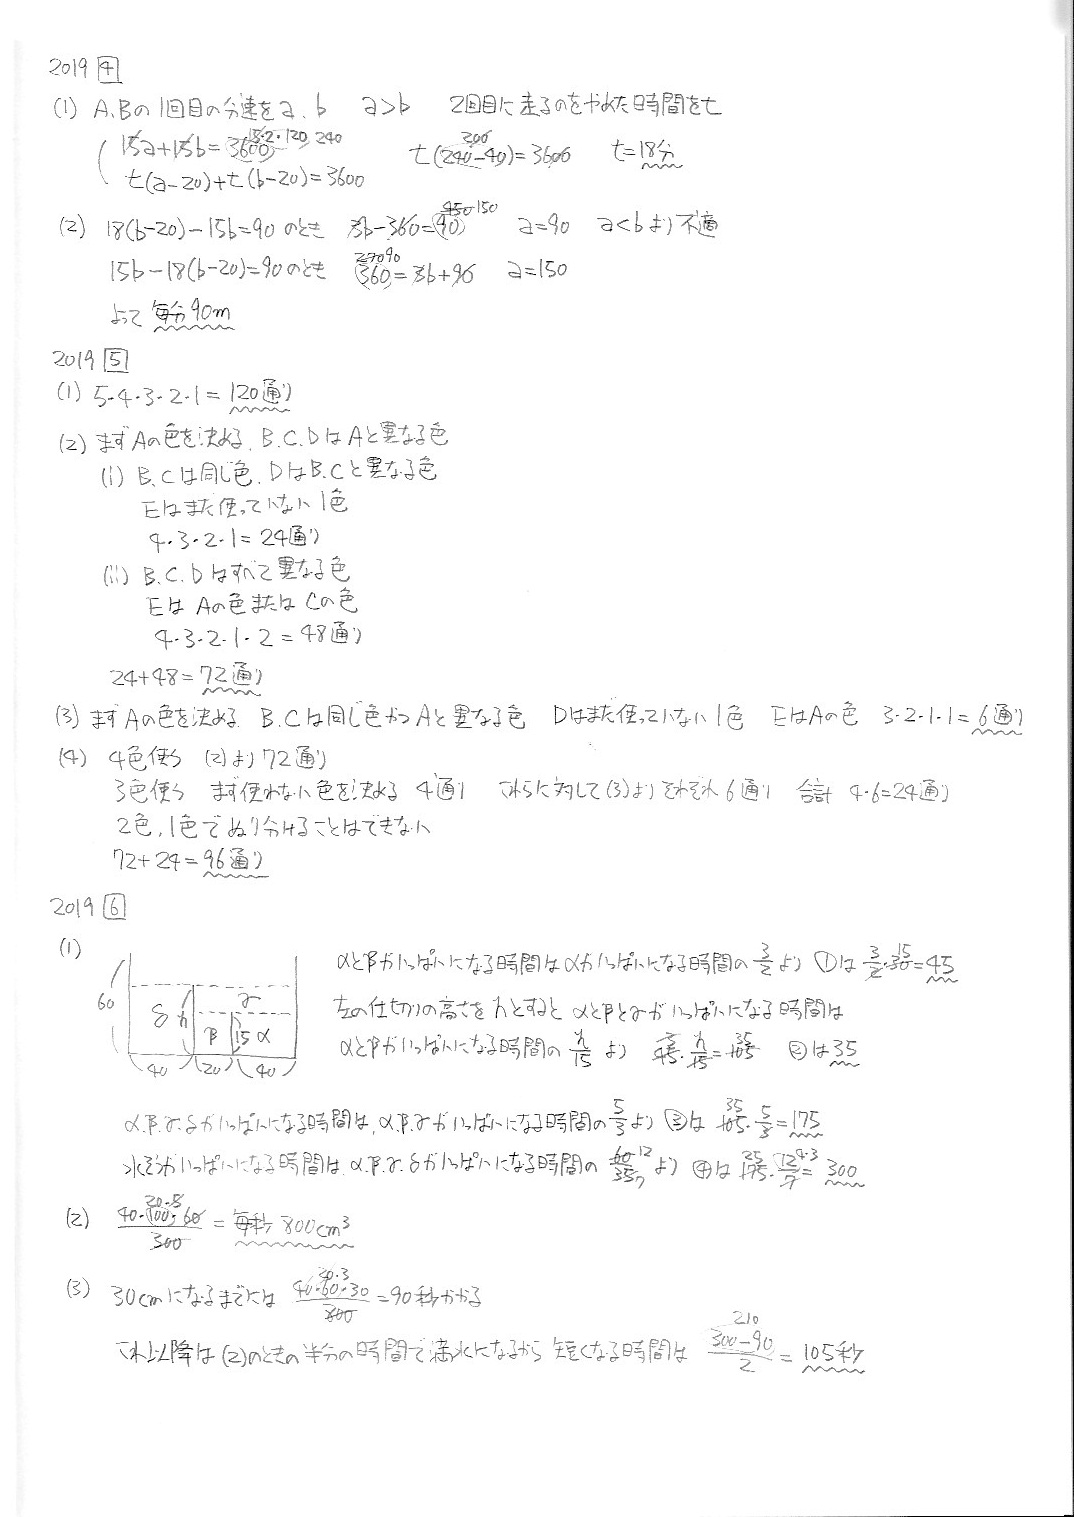 2019 4
(1) A.Bの1回目の分速をa、b a>b 2回目に走るのをやめた時間をt
15a+15b=3600 15・2・120 240 t(240-40)=3600 200 t=18分
t(a-20)+t(b-20)=3600
(2) 18(b-20)-15b=90のとき 3b-360=90 450 150 a=90 a<bより不適
15b-18(b-20)=90のとき 360=3b+90 270 90 a=150
よって 毎分90m
2019 5
(1) 5・4・3・2・1=120通り
(2) まずAの色を決める。B.C.DはAと異なる色
(i) B.Cは同じ色.DはB.Cと異なる色
Eはまだ使っていない1色
4・3・2・1=24通り
(ii) B.C.Dはすべて異なる色
EはAの色またはCの色
4・3・2・1・2=48通り
24+48=72通り
(3) まずAの色を決める B.Cは同じ色かつAと異なる色 Dはまだ使っていない1色 EはAの色 3・2・1・1=6通り
(4) 4色使う (2)より72通り
3色使う まず使わない色を決める 4通り これらに対して(3)よりそれぞれ6通り 合計 4・6=24通り
2色,1色でぬり分けることはできない
72+24=96通り
2019 6
(1)
60 δ h γ β 15 α 40 20 40
αとβがいっぱいになる時間はαがいっぱいになる時間の3/2より ①は3/2・30=45 15
左の仕切りの高さをhとするとαとβとγがいっぱいになる時間は
αとβがいっぱいになる時間のh/15より 45・h/15=105 3 35 ②は35
α.β.γ.δがいっぱいになる時間は,α.β.γがいっぱいになる時間の5/3より ③は105・5/3=175 35
水そうがいっぱいになる時間はα.β.γ.δがいっぱいになる時間の60/35 12 7より ④は175・12/7=300 25 4・3
(2) 40・100・60/300 20・5 =毎秒 800cm³
(3) 30cmになるまでには 40・60・30/800 30・3 =90秒かかる
これ以降は(2)のときの半分の時間で満水になるから 短くなる時間は 300-90/2 210 =105秒